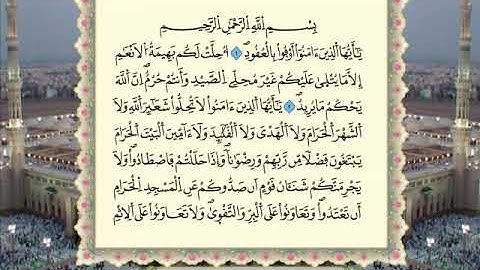 بِسْمِ اللَّهِ الرَّحْمَٰنِ الرَّحِيمِ
يَٰٓأَيُّهَا الَّذِينَ ءَامَنُوٓا أَوْفُوا بِالْعُقُودِ ١ أُحِلَّتْ لَكُم بَهِيمَةُ الَانْعَٰمِ
إِلَّا مَا يُتْلَىٰ عَلَيْكُمْ غَيْرَ مُحِلِّي الصَّيْدِ وَأَنتُمْ حُرُمٌ إِنَّ اللَّهَ
يَحْكُمُ مَا يُرِيدُ ٢ يَٰٓأَيُّهَا الَّذِينَ ءَامَنُوا لَا تُحِلُّوا شَعَٰٓئِرَ اللَّهِ وَلَا
الشَّهْرَ الْحَرَامَ وَلَا الْهَدْيَ وَلَا الْقَلَٰٓئِدَ وَلَآ ءَآمِّينَ الْبَيْتَ الْحَرَامَ
يَبْتَغُونَ فَضْلًا مِّن رَّبِّهِمْ وَرِضْوَٰنًا وَإِذَا حَلَلْتُمْ فَاصْطَادُوا وَلَا
يَجْرِمَنَّكُمْ شَنَـَٔانُ قَوْمٍ أَن صَدُّوكُمْ عَنِ الْمَسْجِدِ الْحَرَامِ
أَن تَعْتَدُوا وَتَعَاوَنُوا عَلَى الْبِرِّ وَالتَّقْوَىٰ وَلَا تَعَاوَنُوا عَلَى الِاثْمِ